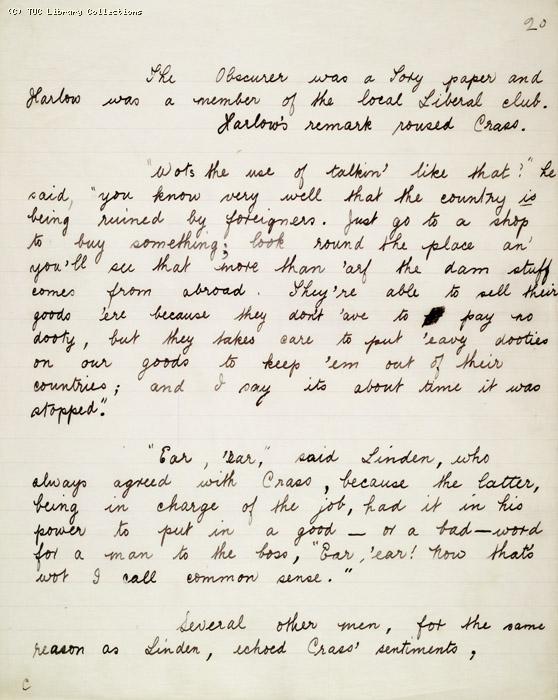 (C) TUC Library Collections
20
The Obscurer was a Tory paper and
Harlow was a member of the local Liberal club.
Harlow's remark roused Crass.
"Wots the use of talkin' like that?" he
said, "you know very well that the country is
being ruined by foreigners. Just go to a shop
to buy something; look round the place an'
you'll see that more than 'arf the dam stuff
comes from abroad. They're able to sell their
goods 'ere because they don't 'ave to pay no
dooty, but they takes care to put 'eavy dooties
on our goods to keep 'em out of their
countries; and I say its about time it was
stopped".
"Ear, 'ear," said Linden, who
always agreed with Crass, because the latter,
being in charge of the job, had it in his
power to put in a good — or a bad — word
for a man to the boss, "Ear, 'ear! Now that's
wot I call common sense."
Several other men, for the same
reason as Linden, echoed Crass' sentiments,
C